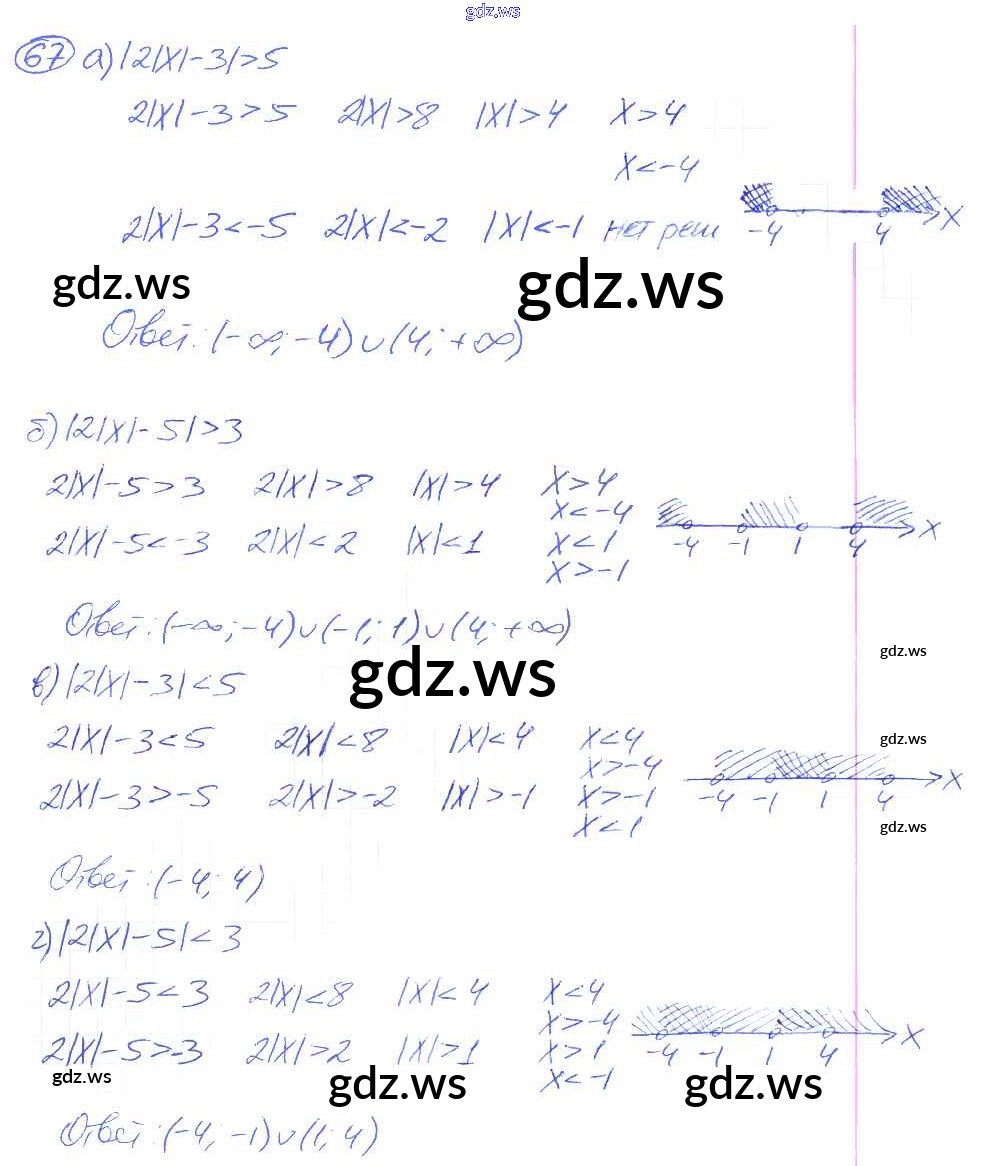 gdz.ws
67 а) |2|x|-3|>5
2|x|-3>5 2|x|>8 |x|>4 x>4
x<-4
2|x|-3<-5 2|x|<-2 |x|<-1 нет реш
-4 4 x
gdz.ws gdz.ws
Ответ: (-∞;-4)∪(4;+∞)
б) |2|x|-5|>3
2|x|-5>3 2|x|>8 |x|>4 x>4
x<-4
2|x|-5<-3 2|x|<2 |x|<1 x<1
x>-1
-4 -1 1 4 x
Ответ: (-∞;-4)∪(-1;1)∪(4;+∞)
gdz.ws gdz.ws
в) |2|x|-3|<5
2|x|-3<5 2|x|<8 |x|<4 x<4
gdz.ws
x>-4
2|x|-3>-5 2|x|>-2 |x|>-1 x>-1
x<1
-4 -1 1 4 x
gdz.ws
Ответ: (-4;4)
г) |2|x|-5|<3
2|x|-5<3 2|x|<8 |x|<4 x<4
x>-4
2|x|-5>-3 2|x|>2 |x|>1 x>1
x<-1
-4 -1 1 4 x
gdz.ws gdz.ws gdz.ws
Ответ: (-4;-1)∪(1;4)